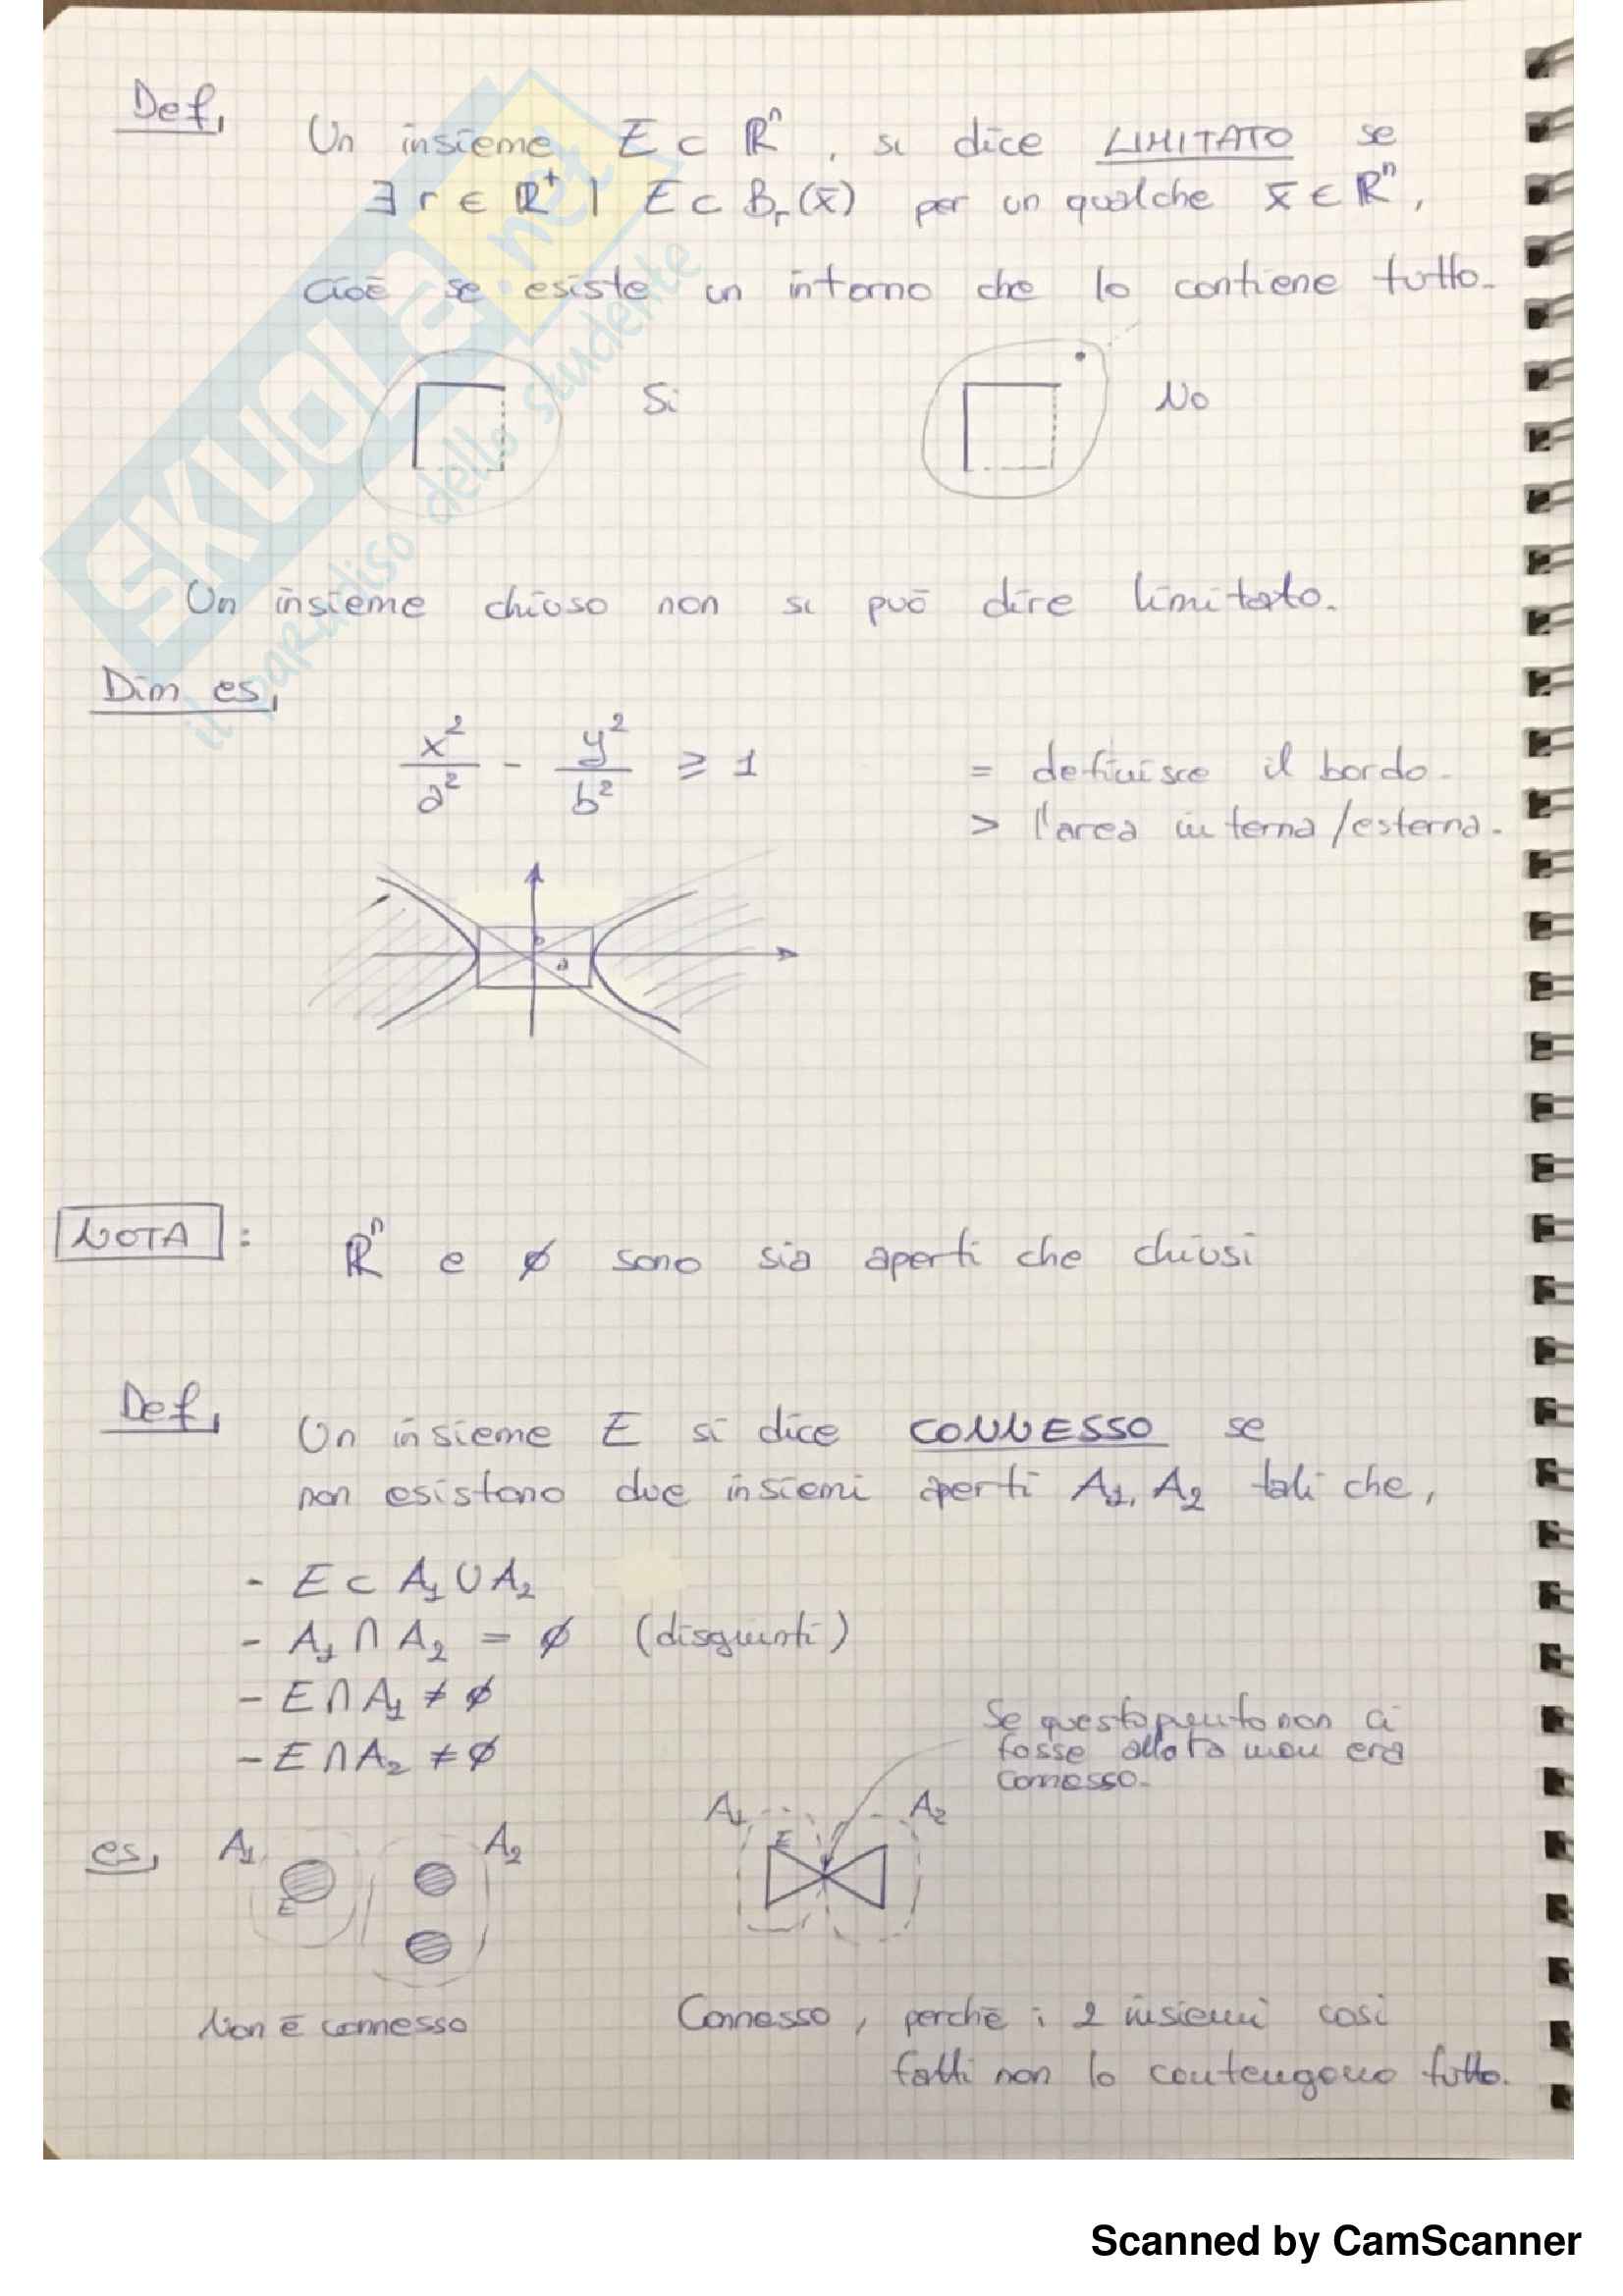 Def,
Un insieme E ⊂ ℝⁿ, si dice LIMITATO se
∃ r ∈ ℝ⁺ | E ⊂ Bᵣ(x̄) per un qualche x̄ ∈ ℝⁿ,
cioè se esiste un intorno che lo contiene tutto.
Si
No
Un insieme chiuso non si può dire limitato.
Dim es,
x²/a² - y²/b² ≥ 1
= definisce il bordo.
> l'area interna/esterna.
b
a
NOTA :
ℝⁿ e ∅ sono sia aperti che chiusi
Def,
Un insieme E si dice CONNESSO se
non esistono due insiemi aperti A₁, A₂ tali che,
- E ⊂ A₁ ∪ A₂
- A₁ ∩ A₂ = ∅ (disgiunti)
- E ∩ A₁ ≠ ∅
- E ∩ A₂ ≠ ∅
Se questo punto non ci
fosse allora non era
connesso.
es,
A₁
E
A₂
A₁
E
A₂
Non è connesso
Connesso, perchè i 2 insiemi così
fatti non lo contengono tutto.
SKUOLA.net
il paradiso dello studente
Scanned by CamScanner